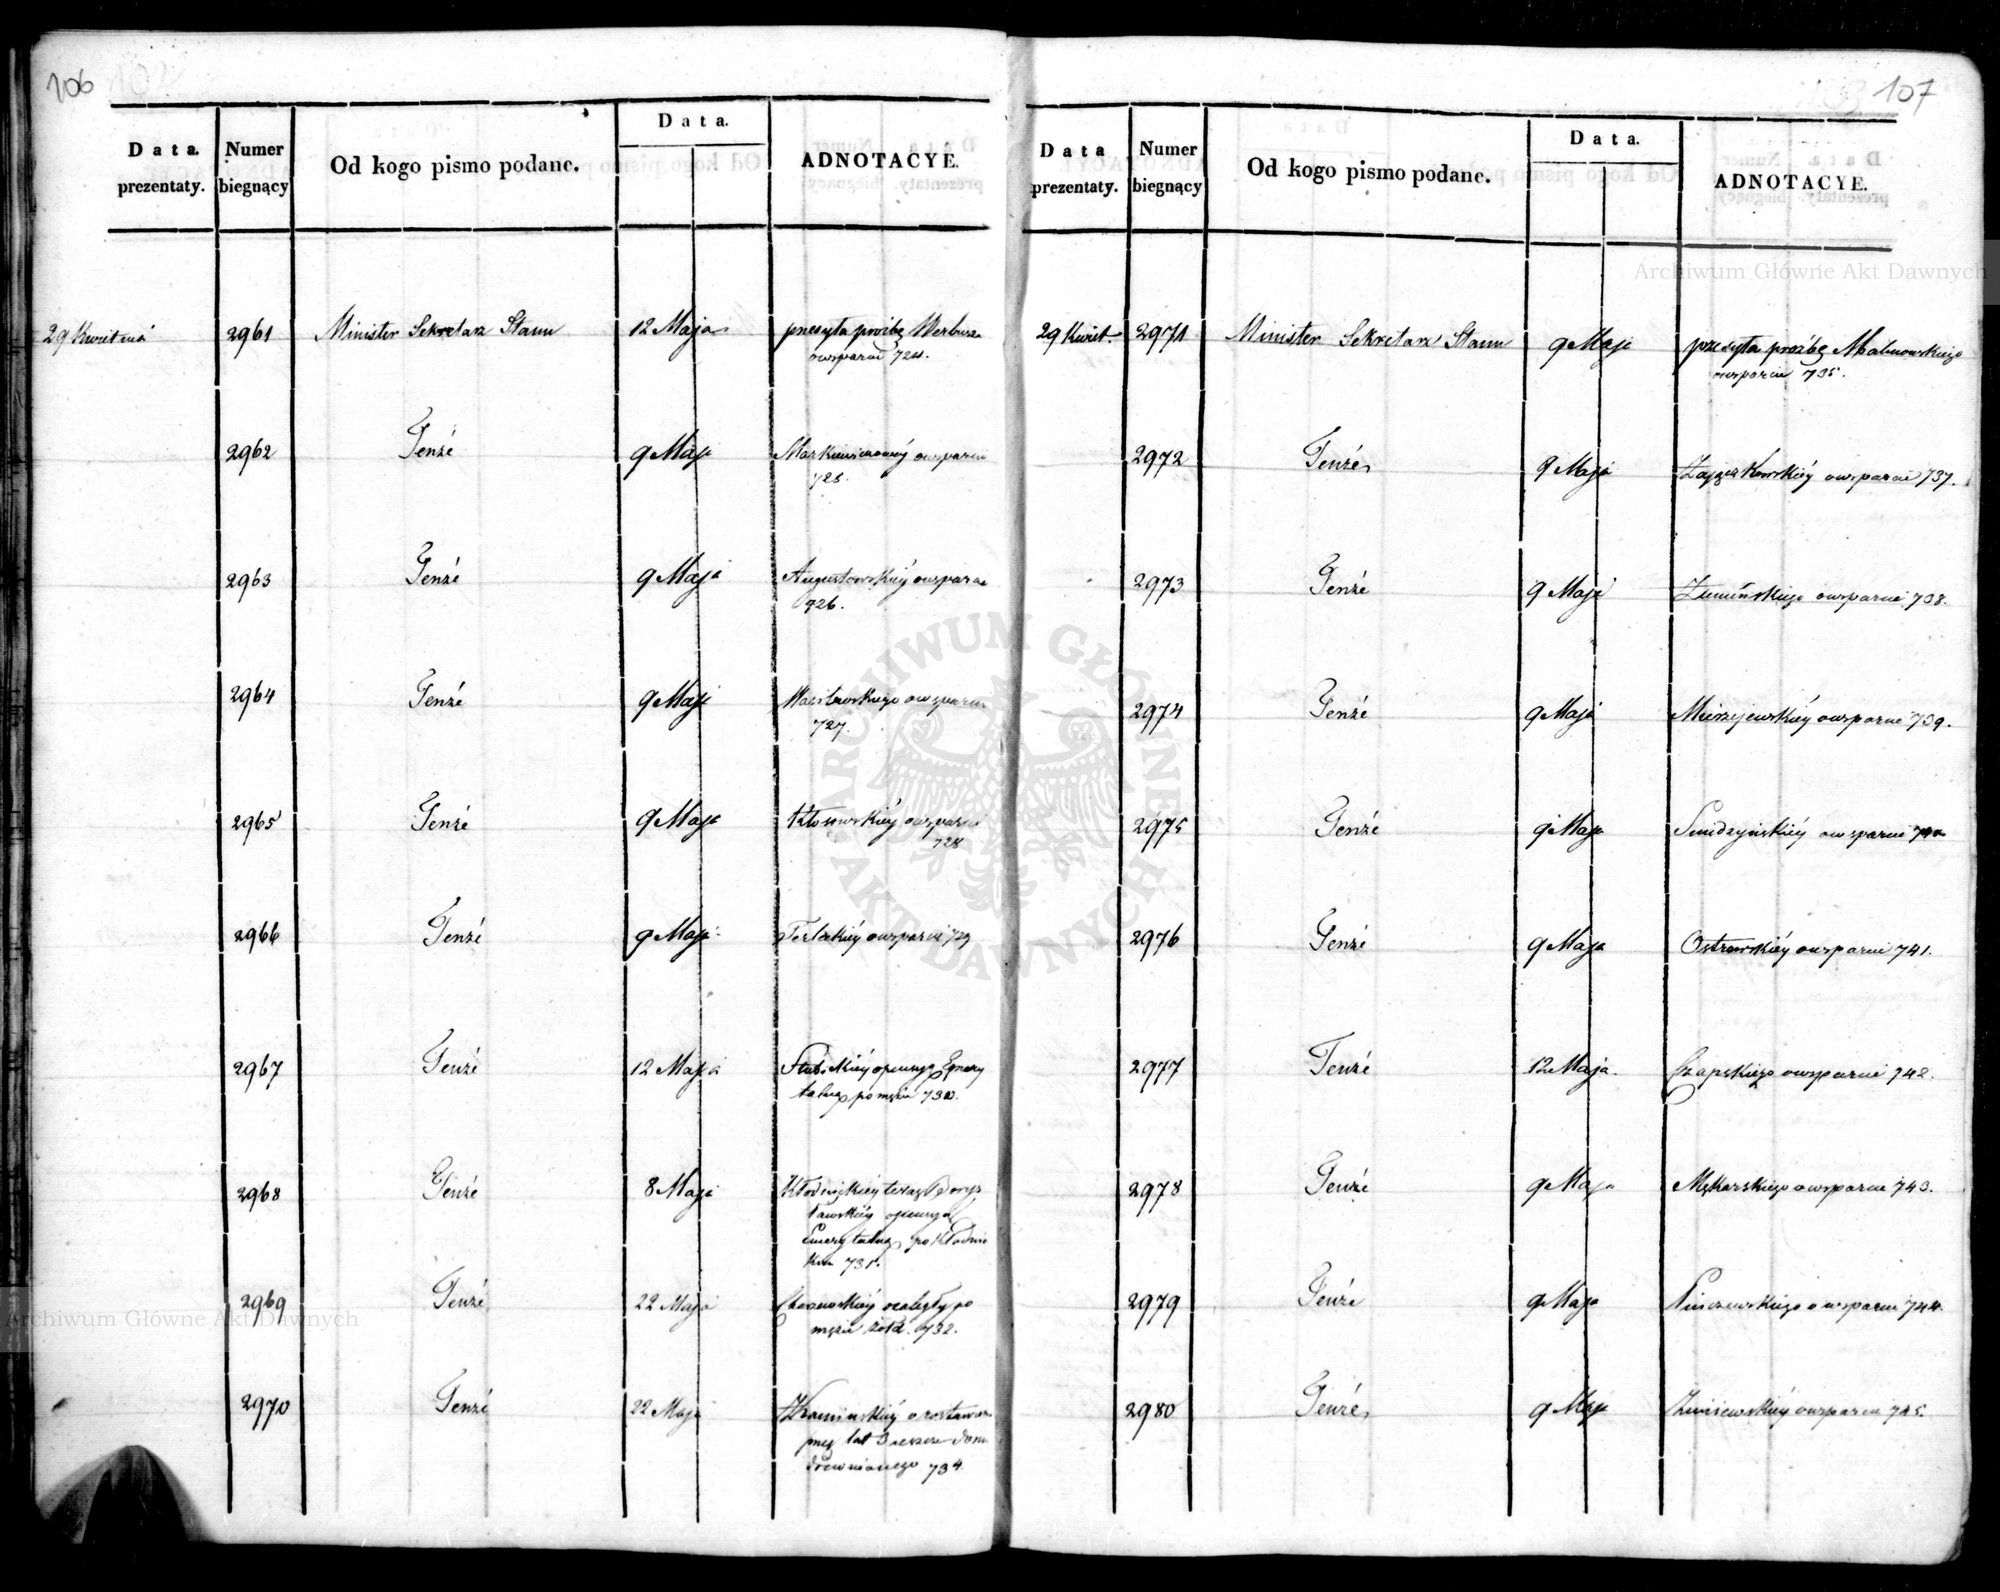 106
Data. prezentaty. Numer biegnący Od kogo pismo podane. Data. ADNOTACYE.
29 Kwietnia 2961 Minister Sekretarz Stanu 12 Maja przesyła proźbę
o wsparcie 724.
2962 Tenże 9 Maja o wsparcie
725.
2963 Tenże 9 Maja Augustowskiéy o wsparcie
726.
2964 Tenże 9 Maja o wsparcie
727.
2965 Tenże 9 Maja Kłosowskiéy o wsparcie
728
2966 Tenże 9 Maja Terleckiéy o wsparcie 729
2967 Tenże 12 Maja o pensyą Emery
talną po mężu 730.
2968 Tenże 8 Maja Kłodnickiéy teraz
o pensyą
Emerytalną po Kłodnic
kim 731.
2969 Tenże 22 Maja o zaległy po
mężu żołd. 732.
2970 Tenże 22 Maja Kamińskiéy o
przez lat 3 ieszcze domu
drewnianego 734.
107
Data prezentaty. Numer biegnący Od kogo pismo podane. Data. ADNOTACYE.
29 Kwiet. 2971 Minister Sekretarz Stanu 9 Maja przesyła proźbę Malinowskiego
o wsparcie 735.
2972 Tenże 9 Maja Zajączkowskiéy o wsparcie 737.
2973 Tenże 9 Maja o wsparcie 738.
2974 Tenże 9 Maja Mierzejewskiéy o wsparcie 739.
2975 Tenże 9 Maja o wsparcie 740
2976 Tenże 9 Maja Ostrowskiéy o wsparcie 741.
2977 Tenże 12 Maja Czapskiego o wsparcie 742.
2978 Tenże 9 Maja Mękarskiego o wsparcie 743.
2979 Tenże 9 Maja Pinczewskiego o wsparcie 744.
2980 Tenże 9 Maja o wsparcie 745.
Archiwum Główne Akt Dawnych
ARCHIWUM GŁÓWNE AKT DAWNYCH
Archiwum Główne Akt Dawnych